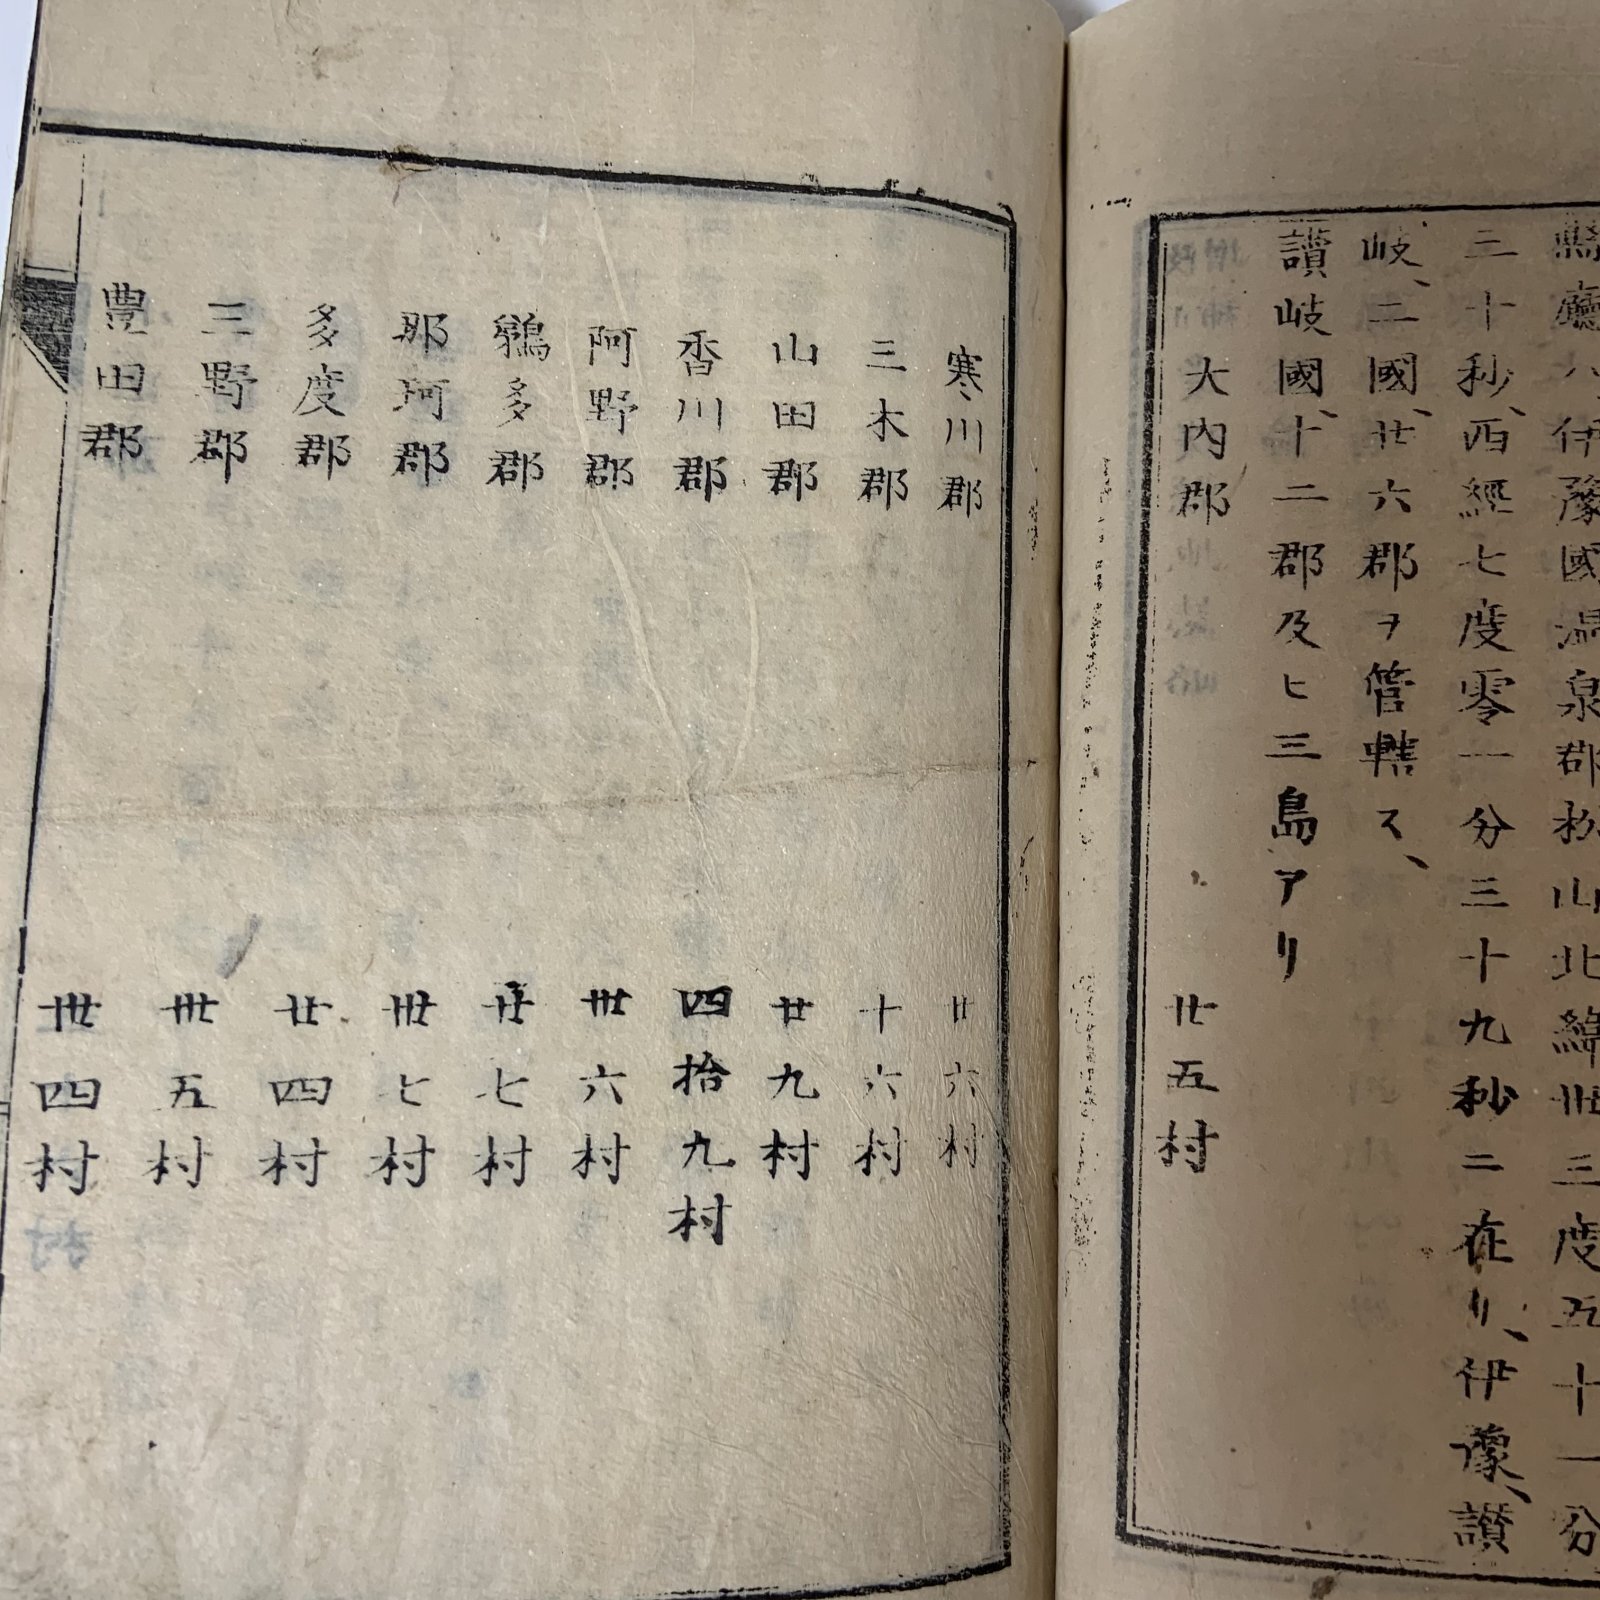 縣廳ハ伊豫國温泉郡松山北緯卅三度五十一分
三十秒、西經七度零一分三十九秒ニ在リ、伊豫、讃
岐、二國、廿六郡ヲ管轄ス、
讃岐國、十二郡及ヒ三島アリ
大内郡 廿五村
寒川郡 廿六村
三木郡 十六村
山田郡 廿九村
香川郡 四拾九村
阿野郡 卅六村
鵜多郡 廿七村
那珂郡 卅七村
多度郡 廿四村
三野郡 卅五村
豊田郡 卅四村